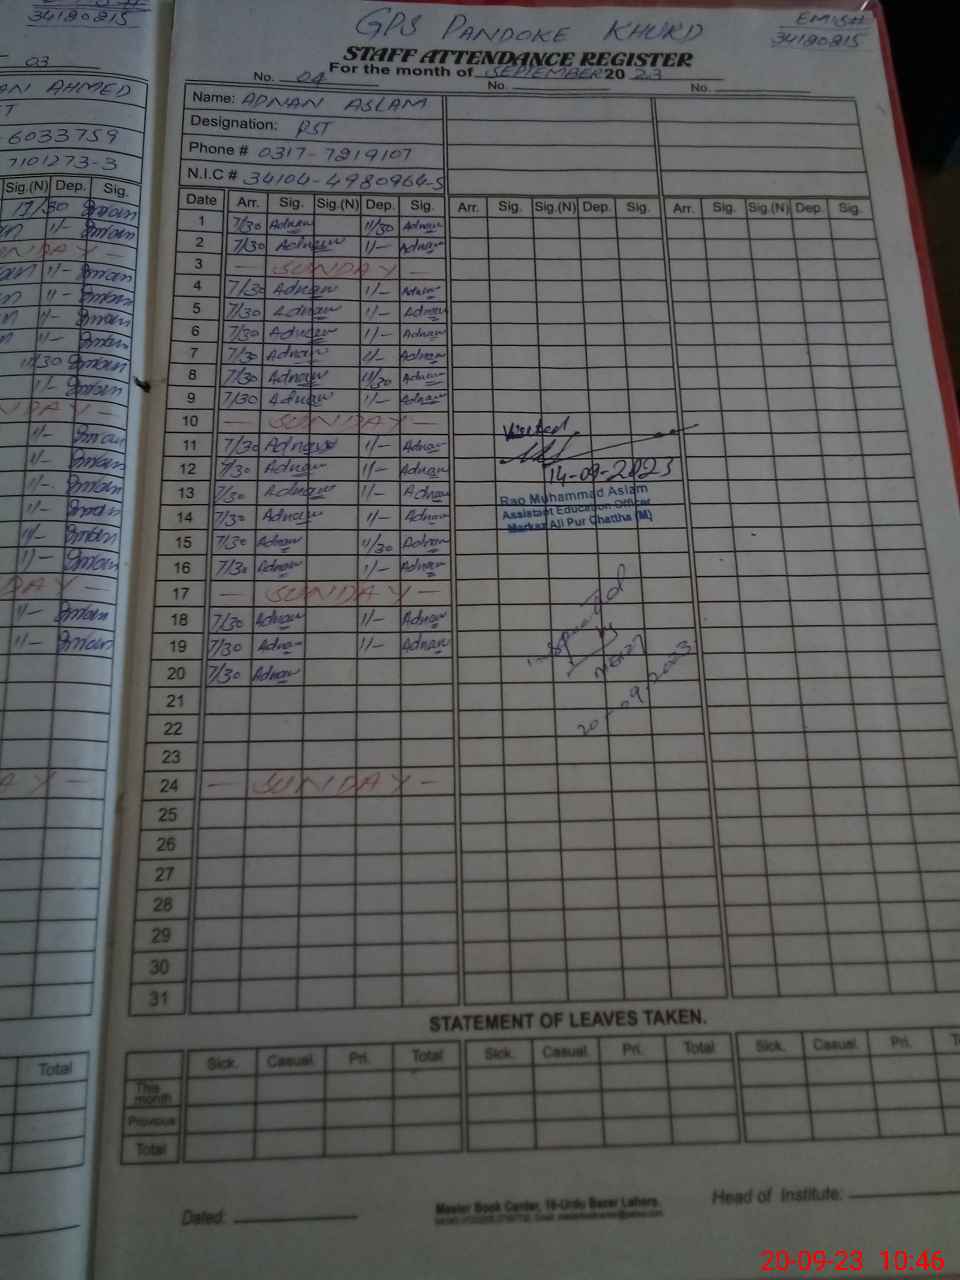 34180815
03
AN AHMED
T
-6033759
7101273-3
Sig.(N) Dep. Sig.
17/30 Imran
11/- Imran
NDAY -
11/- Imran
11/- Imran
11/- Imran
11/- Imran
11/30 Imran
11/- Imran
NDAY -
11/- Imran
11/- Imran
11/- Imran
11/- Imran
11/- Imran
11/- Imran
DAY -
11/- Imran
11/- Imran
AY -
Total
GPS PANDOKE KHURD
EMIS#
34180815
STAFF ATTENDANCE REGISTER
For the month of SEPTEMBER 2023
No. 04 No. No.
Name: ADNAN ASLAM
Designation: PST
Phone # 0317-7219107
N.I.C # 34104-4980964-5
Date Arr. Sig. Sig.(N) Dep. Sig. Arr. Sig. Sig.(N) Dep. Sig. Arr. Sig. Sig.(N) Dep. Sig.
1 7/30 Adnan 11/30 Adnan
2 7/30 Adnan 11/- Adnan
3 - SUNDAY -
4 7/30 Adnan 11/- Adnan
5 7/30 Adnan 11/- Adnan
6 7/30 Adnan 11/- Adnan
7 7/30 Adnan 11/- Adnan
8 7/30 Adnan 11/30 Adnan
9 7/30 Adnan 11/- Adnan
10 - SUNDAY -
11 7/30 Adnan 11/- Adnan
12 7/30 Adnan 11/- Adnan
13 7/30 Adnan 11/- Adnan
14 7/30 Adnan 11/- Adnan
15 7/30 Adnan 11/30 Adnan
16 7/30 Adnan 11/- Adnan
17 - SUNDAY -
18 7/30 Adnan 11/- Adnan
19 7/30 Adnan 11/- Adnan
20 7/30 Adnan
21
22
23
24 - SUNDAY -
25
26
27
28
29
30
31
Visited
14-09-2023
Rao Muhammad Aslam
Assistant Education Officer
Markaz Ali Pur Chattha (M)
by
20-09-2023
STATEMENT OF LEAVES TAKEN.
Sick. Casual. Pri. Total Sick. Casual. Pri. Total Sick. Casual. Pri. T
This month
Previous
Total
Dated:
Master Book Center, 16-Urdu Bazar Lahore.
Head of Institute:
20-09-23 10:46